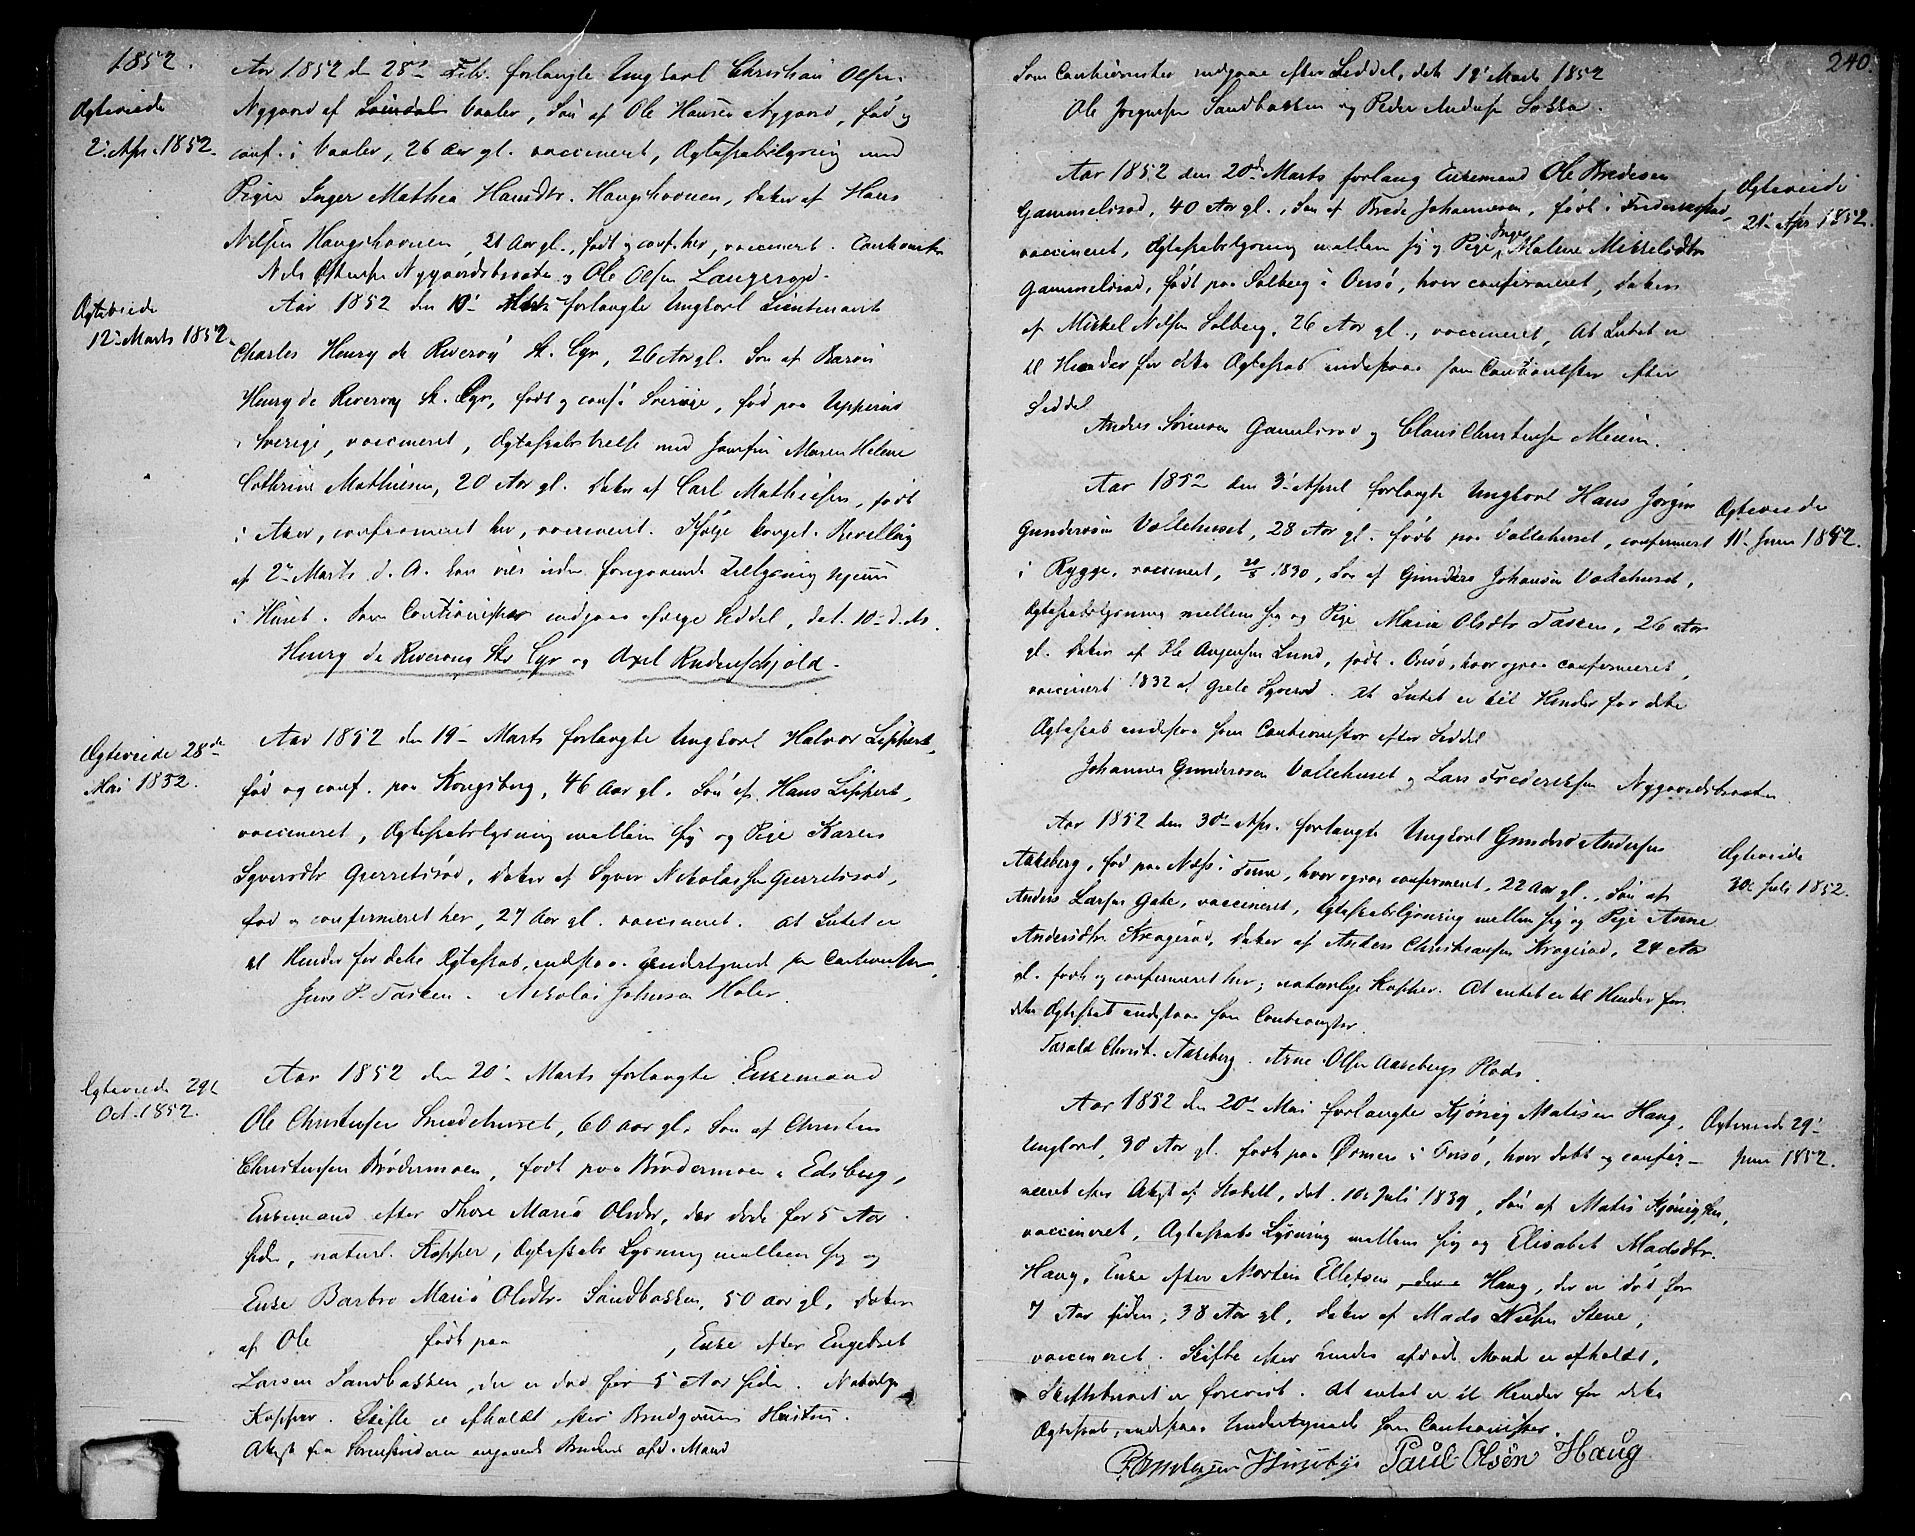 1852.
Aar 1852 d. 28' Febr. forlangte Ungkarl Christian Olsen
Ægteviede
2' Apr. 1852.
Nygaard af Vaaler, Søn af Ole Hansen Nygaard, fød og
conf. i Vaaler, 26 Aar gl. vaccineret, Ægteskabslysning med
Pige Inger Mathea Hansdtr. Haugshavnen, Datter af Hans
Nilsen Haugshavnen, 21 Aar gl., født og conf. her, vaccineret.
Nils Nygaardsbraaten og Ole Olsen Langerød.
Ægteviede
12' Marts 1852.
Aar 1852 den 10' Marts forlangte Ungkarl Lieutenant
Charles Henry de Reverony St. Cyr, 26 Aar gl. Søn af Baron
Henry de Reverony St. Cyr, født og conf. i Sverige, fød paa
i Sverige, vaccineret, Ægteskabs med Jomfru Maren Helene
Cathrine Mathiesen, 20 Aar gl. Datter af Carl Mathiesen, født
i Aker, confirmeret her, vaccineret. Ifølge kongel. Bevilling
af 2' Marts d. A. kan vies uden foregaaende Tillysning hjemme
i Huset. Som Cautionister indgaae ifølge Seddel, dat. 10' d. M.
Henry de Reverony St. Cyr og Axel Rudenschjold.
Ægteviede 28de
Mai 1852.
Aar 1852 den 19' Marts forlangte Ungkarl Halvor Lippert,
fød og conf. paa Kongsberg, 46 Aar gl. Søn af Hans Lippert,
vaccineret, Ægteskabslysning mellem sig og Pige Karen
Syversdtr Gjerretsrød, Datter af Syver Nikolaisen Gjerretsrød,
fød og confirmeret her, 27 Aar gl. vaccineret. At Intet er
til Hinder for dette Ægteskab, indstaae Undertegnede som Cautionister,
Jens P. Tasken. Nikolai Johnsen Holer.
Ægteviede 29'
Oct. 1852.
Aar 1852 den 20' Marts forlangte Enkemand
Ole Christensen Smedehuset, 60 Aar gl. Søn af Christen
Christensen Brødermoen, født paa Brødermoen i Edsberg,
Enkemand efter Thore Maria Olsdtr, der døde for 5 Aar
siden, naturl. Kopper, Ægteskabs Lysning mellem sig og
Enke Barbro Maria Olsdtr. Sandbakken, 50 Aar gl. Datter
af Ole født paa , Enke efter Engebret
Larsen Sandbakken, der er død for 5 Aar siden. Naturlige
Kopper. Skifte er afholdt efter Brudgommens Hustru.
Attest fra angaaende Brudens afd. Mand
240.
Som Cautionister indgaae efter Seddel, dat. 19' Marts 1852
Ole Jørgensen Sandbakken og Peder Andersen
Ægteviede
21' Apr. 1852.
Aar 1852 den 20d Marts forlang Enkemand Ole Bredesen
Gammelsrød, 40 Aar gl., Søn af Brede Johannesen, født i Frederikstad,
vaccineret, Ægteskabslysning mellem sig og Pige Inger Malene Mikkelsdtr
Gammelsrød, født paa Solberg i Onsø, hvor confirmeret, Datter
af Mikkel Nilsen Solberg, 26 Aar gl., vaccineret, At Intet er
til Hinder for dette Ægteskab indestaae som Cautionister efter
Seddel
Anders Sørensen Gamelsrød og Claus Christensen
Ægteviede
11' Juni 1852.
Aar 1852 den 3' April forlangte Ungkarl Hans Jørgen
Gundersen Vattehuset, 28 Aar gl. født paa Vattehuset, confirmert
i Rygge, vaccinert, 20/8 1830, Søn af Gunders Johansen Vattehuset,
Ægteskabslysning mellem sig og Pige Maria Olsdtr Tasken, 26 Aar
gl. Datter af Ole Aagesen Lund, født i Onsø, hvor ogsaa confirmeret,
vaccinert 1832 af Grete Syverød. At Intet er til Hinder for dette
Ægteskab indestaa som Cautionister efter Seddel
Johannes Gundersen Vattehuset og Lars Frederiksen Nygaardsbraaten.
Ægteviede
30' Juli 1852.
Aar 1852 den 30' Apr. forlangte Ungkarl Gunder Andersen
Aarberg, fød paa Næs i Tune, hvor ogsaa confirmert, 22 Aar gl., Søn af
Anders Larsen Gate, vaccineret, Ægteskabslysning mellem sig og Pige Anne
Andersdtr Kragerød, Datter af Anders Christensen Kragerød, 24 Aar
gl. født og confirmeret her; naturlige Kopper. At intet er til Hinder for
dette Ægteskab indestaae som Cautionister.
Tarald Christ. Aarsberg. Arne Olsen Aarsbergs Plads.
Ægteviede 29'
Juni 1852.
Aar 1852 den 20' Mai forlangte Kjønig Matisen Haug,
Ungkarl, 30 Aar gl. født paa i Onsø, hvor døbt og confir-
meret efter Attest af dat. 10' Juli 1839, Søn af Matis Kjønigsen,
vaccineret, Ægteskabs Lysning mellem sig og Elisabet Madsdtr.
Haug, Enke efter Morten Ellefsen Haug, der er død for
7 Aar siden, 38 Aar gl. Datter af Mads Nielsen Stene,
vaccineret. Skifte efter hendes afdøde Mand er afholdt,
Skiftebrevet er forevist. At intet er til Hinder for dette
Ægteskab, indestaae Undertegnede som Cautionister.
Paul Olsen Haug